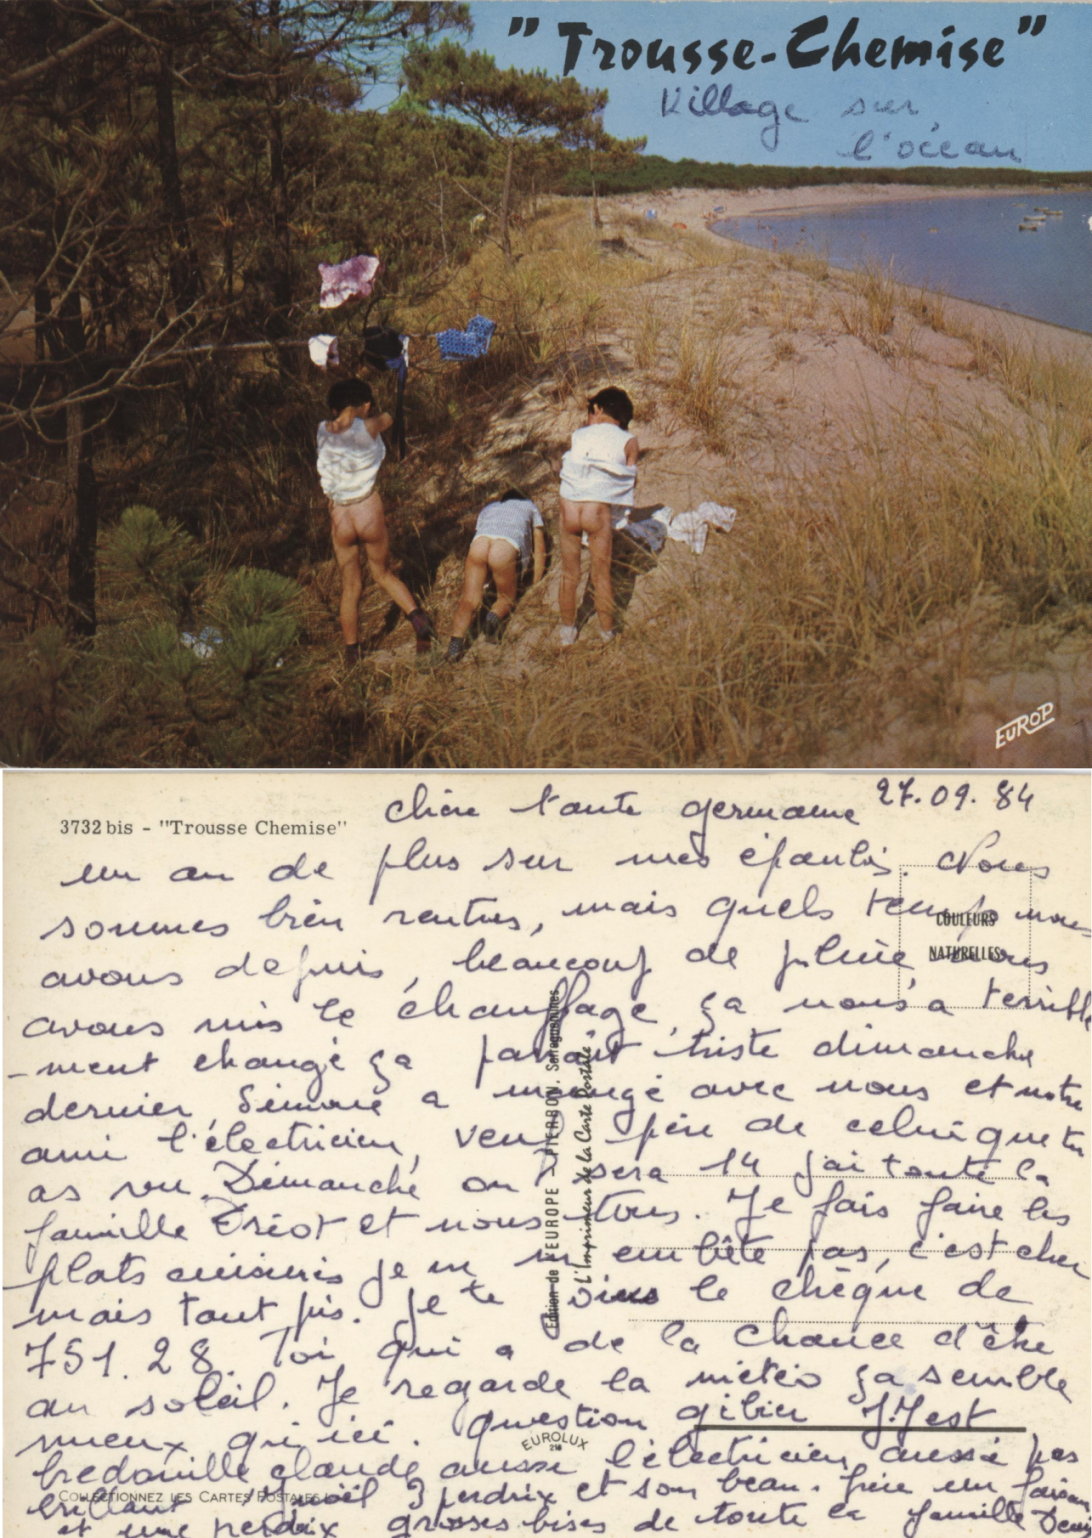 "Trousse-Chemise"
Village sur
l'océan
EUROP
chère tante germaine 27.09.84
3732 bis - "Trousse Chemise"
un an de plus sur mes épaules. Nous
COULEURS
NATURELLES
sommes bien rentrés, mais quels temps nous
avons depuis, beaucoup de pluie nous
avons mis le chauffage, ça nous a terrible
-ment changé ça parait triste dimanche
dernier, Simone a mangé avec nous et notre
ami l'électricien, père de celui que tu
as vu. Dimanche on sera 14 j'ai toute la
famille et nous tous. Je fais faire les
plats cuisinés je m'embête pas, c'est cher
mais tant pis. Je te le chèque de
751.28 Toi qui a de la chance d'être
au soleil. Je regarde la météo ça semble
mieux qu'ici. question gibier J.J est
bredouille claude aussi l'électricien aussi pas
brillant 3 perdrix et son beau-frère un faisan
et une perdrix grosses bises de toute la famille
Edition de l'EUROPE - PIERRON, Sarreguemines
L'Imprimeur de la Carte Postale
EUROLUX
COLLECTIONNEZ LES CARTES POSTALES